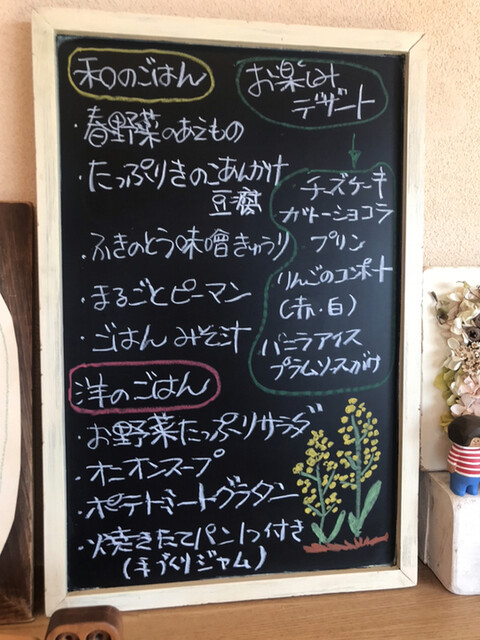 和のごはん
・春野菜のあえもの
・たっぷりきのこあんかけ
豆腐
・ふきのとう味噌きゅうり
・まるごとピーマン
・ごはん みそ汁
洋のごはん
・お野菜たっぷりサラダ
・オニオンスープ
・ポテトミートグラタン
・焼きたてパン1つ付き
(手づくりジャム)
お楽しみ
デザート
チーズケーキ
ガトーショコラ
プリン
りんごのコンポート
(赤・白)
バニラアイス
プラムソースがけ